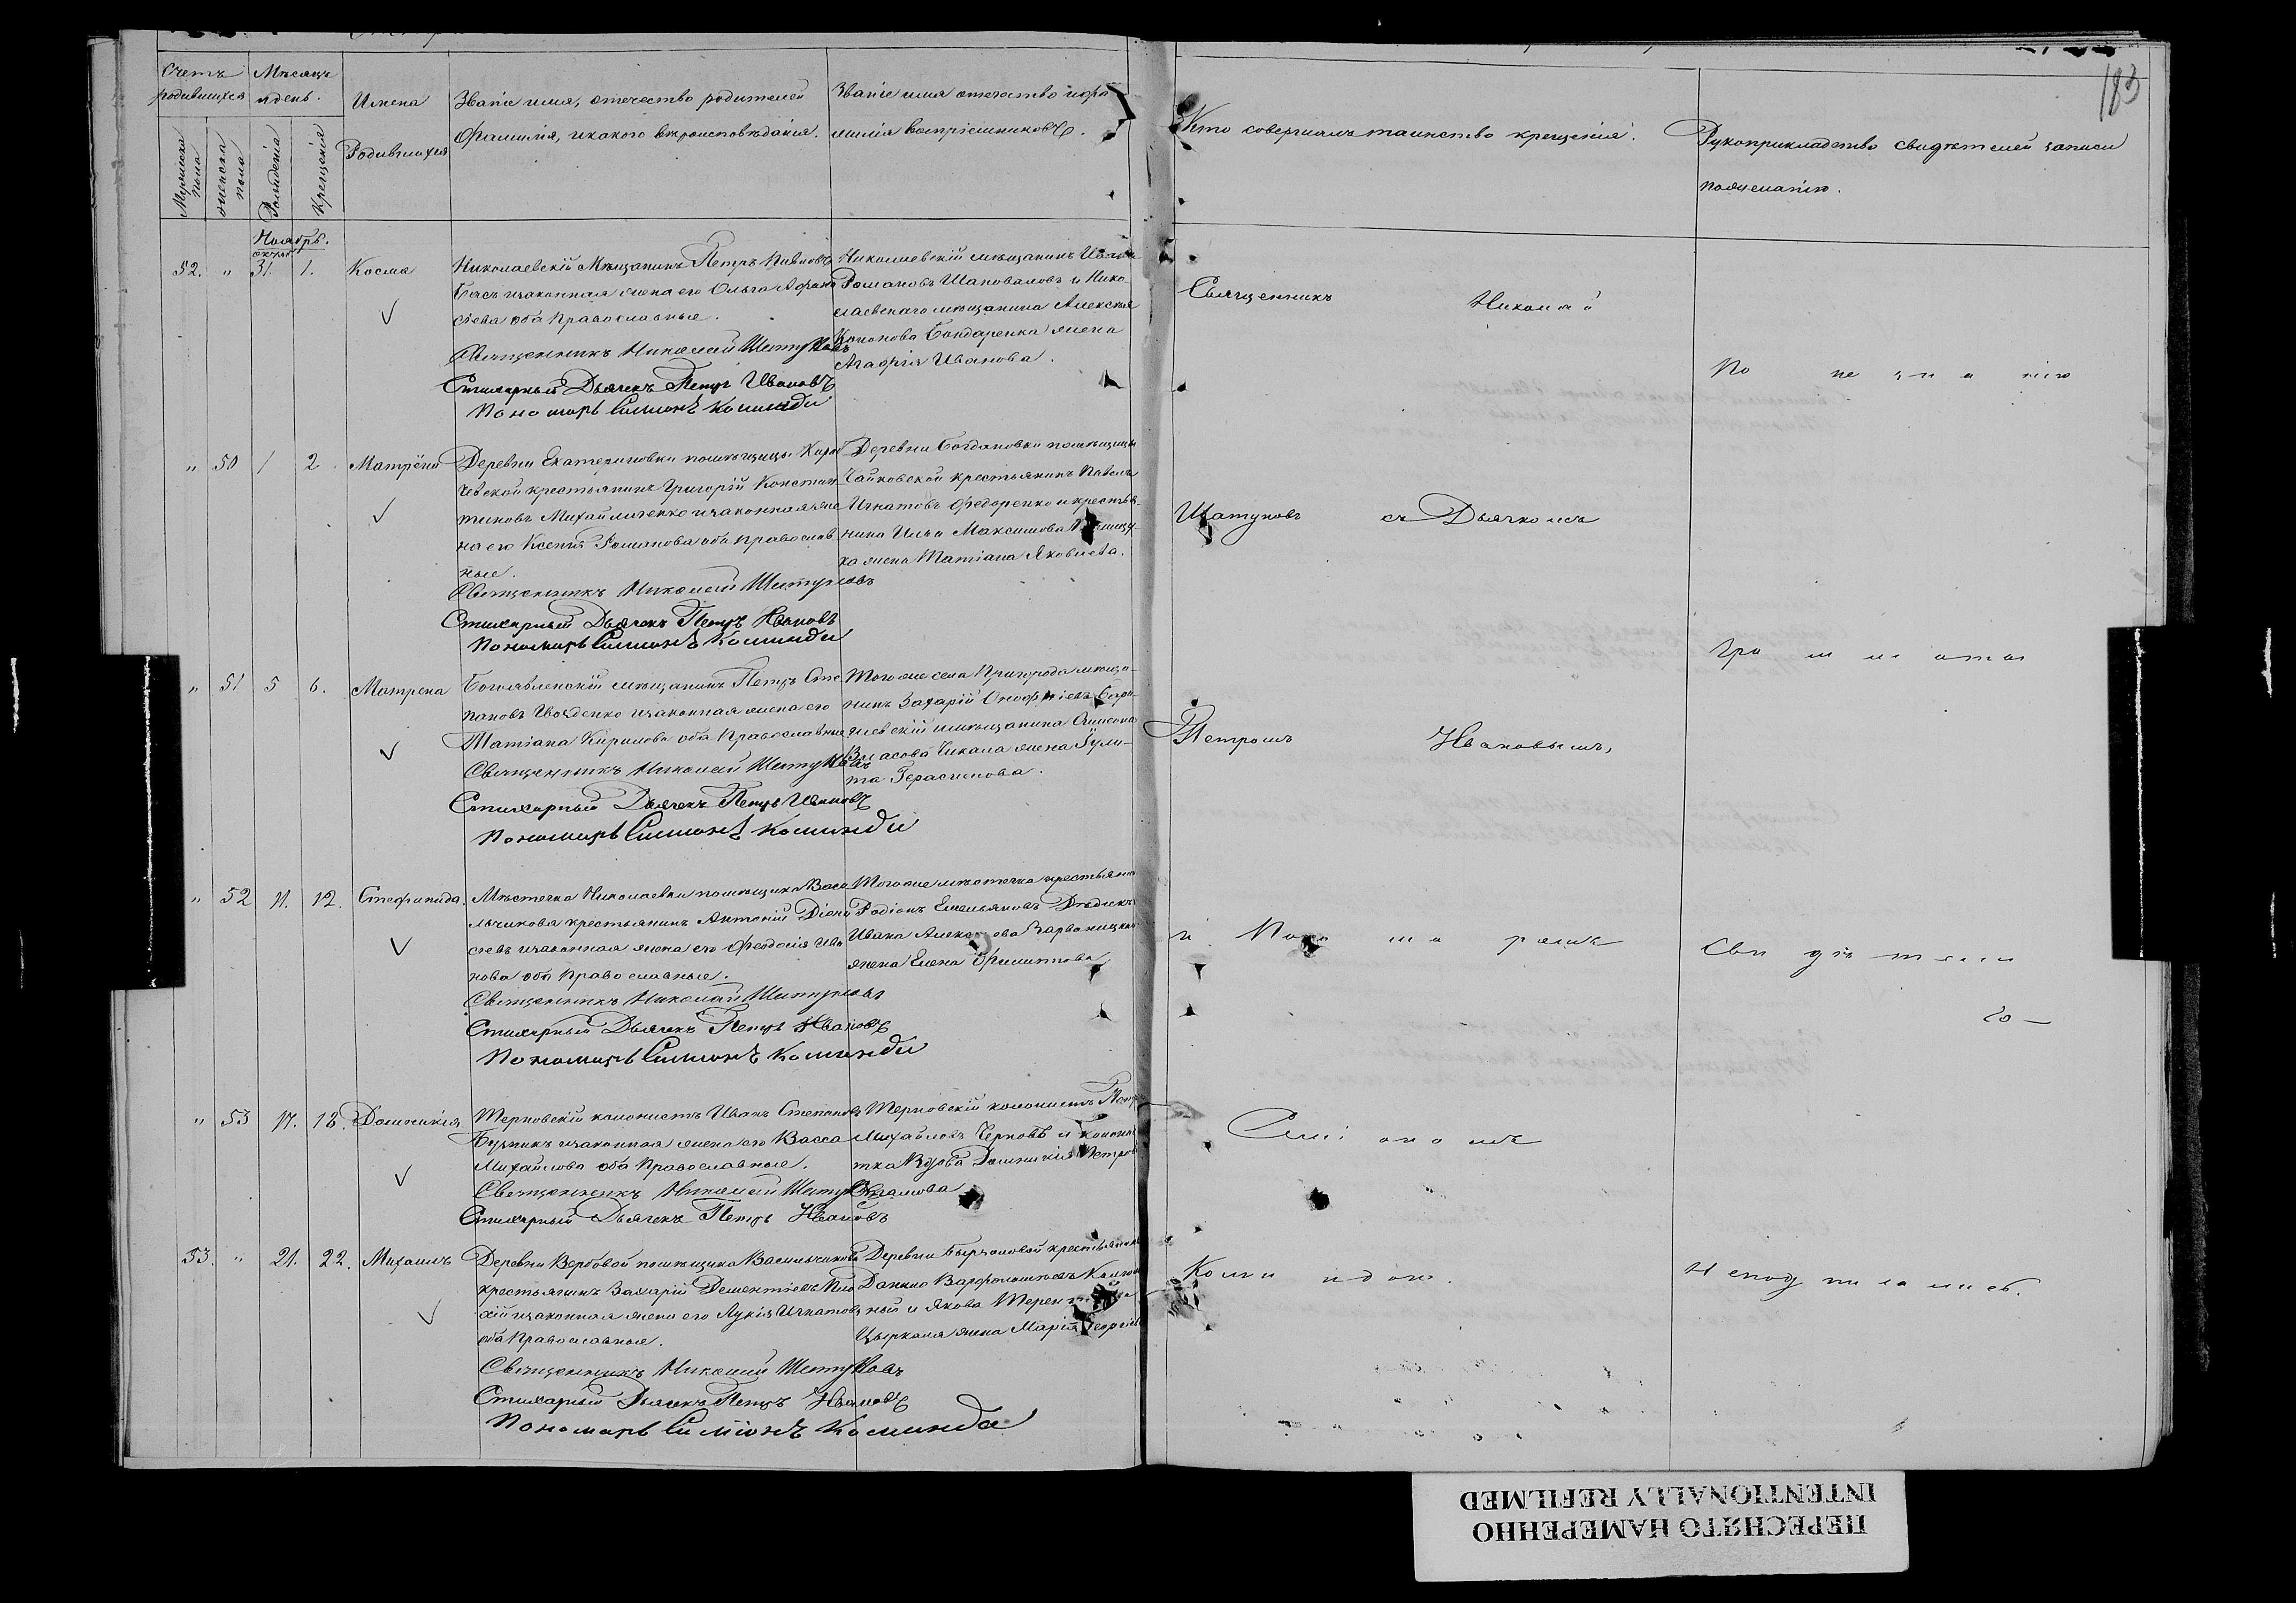 183
Счетъ родившихся
Мѣсяцъ и день.
Имена Родившихся
Званіе имя, отечество родителей
Фамилія, и какого вѣроисповѣданія.
Званіе имя отечество и фа
милія воспріемниковъ.
Кто совершалъ таинство крещенія.
Рукоприкладство свидѣтелей записи
по желанію.
Мужеска пола
Женска пола
Рожденія
Крещенія
Ноябрь.
октяб
52. " 31 1. Косма
Николаевскій Мѣщанинъ Петръ Павловъ
и законная жена его Ольга Афана
сіева оба Православные.
Священникъ Николай Шатуновъ
Стихарный Дьячекъ Петръ Ивановъ
Пономарь Симіонъ Коминди
Николаевскій мѣщанинъ Иванъ
Романовъ Шаповаловъ и Нико
лаевскаго мѣщанина Алексѣя
Кононова Бондаренка жена
Агафія Иванова.
" 50 1 2 Матрёна
Деревни Екатериновки помѣщицы
крестьянинъ Григорій Констан
тиновъ Михайличенко и законная же
на его Ксенія Романова оба Православ
ные.
Священникъ Николай Шатуновъ
Стихарный Дьячекъ Петръ Ивановъ
Пономарь Симионъ Коминди
Деревни Богдановки помѣщицы
Чайковской крестьянинъ Павелъ
Игнатовъ Федоренко и крестья
нина Ильи Максимова
жена Татіана Яковлева.
" 51 5 6. Матрена
Богоявленскій мѣщанинъ Петръ Сте
пановъ Гвозденко и законная жена его
Татіана Кирилова оба Православные
Священникъ Николай Шатуновъ
Стихарный Дьячекъ Петръ Ивановъ
Пономарь Симионъ Коминди
Того же села Пригорода мѣща
нинъ Захарій Онофріевъ
мѣщанина
Власова Чикала жена Іули
та Герасимова.
" 52 11. 12. Стефанида.
Мѣстечка Николаевки помѣщика Васи
льчикова крестьянинъ Антоній Діони
сіевъ и законная жена его Феодосія Ива
нова оба Православные.
Священникъ Николай Шатуновъ
Стихарный Дьячекъ Петръ Ивановъ
Пономарь Симионъ Коминди
Того же мѣстечка крестьянинъ
Родіонъ Емельяновъ
Ивана
жена Елена Филиппова
" 53 17. 18. Домникія
Терновскій колонистъ Иванъ Степановъ
и законная жена его Васса
Михайлова оба Православные.
Священникъ Николай Шатуновъ
Стихарный Дьячекъ Петръ Ивановъ
Терновскій колонистъ Петръ
Михайловъ Черновъ и колонис
тка вдова Домникія Петрова
53. " 21. 22. Михаилъ
Деревни Вербовой помѣщика Васильчикова
крестьянинъ Захарій Дементіевъ
и законная жена его Лукія Игнатова
оба Православные.
Священникъ Николай Шатуновъ
Стихарный Дьячекъ Петръ Ивановъ
Пономарь Симіонъ Коминда
Деревни крестьянинъ
Данило Варфоломѣевъ
и Якова
жена Марія
Священникъ Николай
Шатуновъ съ Дьячкомъ
Петромъ Ивановымъ,
и Пономаремъ
Симіономъ
Коминдою.
По незнанію
грамматы
Свидѣтели
со–
Неподписались.
ПЕРЕСНЯТО НАМЕРЕННО
INTENTIONALLY REFILMED